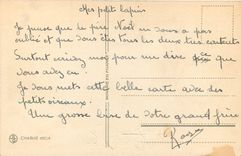 Mes petits lapins
Je pense que le père Noël ne vous a pas
oublié et que vous êtes tous les deux très contents
Surtout écrivez moi pour me dire ce que
vous avez eu.
Je vous mets cette belle carte avec des
petits oiseaux.
Une grosse bise de votre grand frère